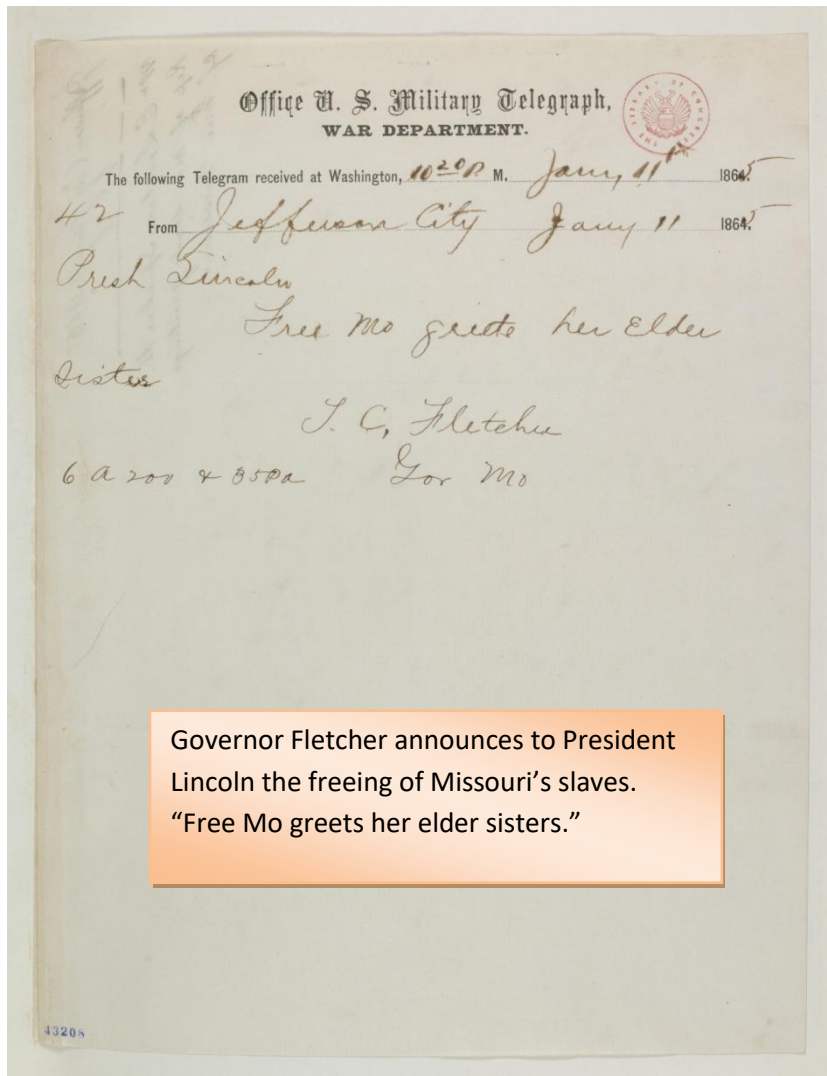 Office U. S. Military Telegraph,
WAR DEPARTMENT.
THE LIBRARY OF CONGRESS
The following Telegram received at Washington, 10 20 P M. Jany, 11th 1865
42 From Jefferson City Jany 11 1865
Prest Lincoln
Free Mo greets her Elder
Sisters
T. C, Fletcher
6 a 200 & 350 Pa Gov Mo
Governor Fletcher announces to President
Lincoln the freeing of Missouri’s slaves.
“Free Mo greets her elder sisters.”
43208